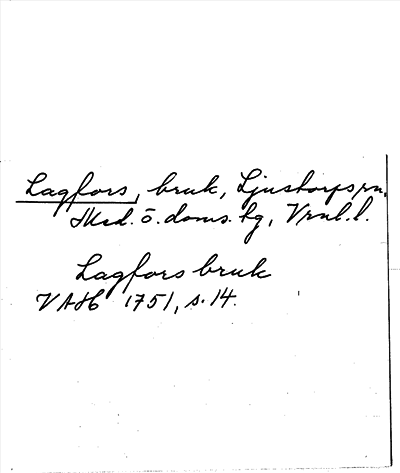 Lagfors, bruk, Ljustorps sn,
Med. ö. doms. hg, Vrnl. l.
Lagfors bruk
VAH 1751, s. 14.